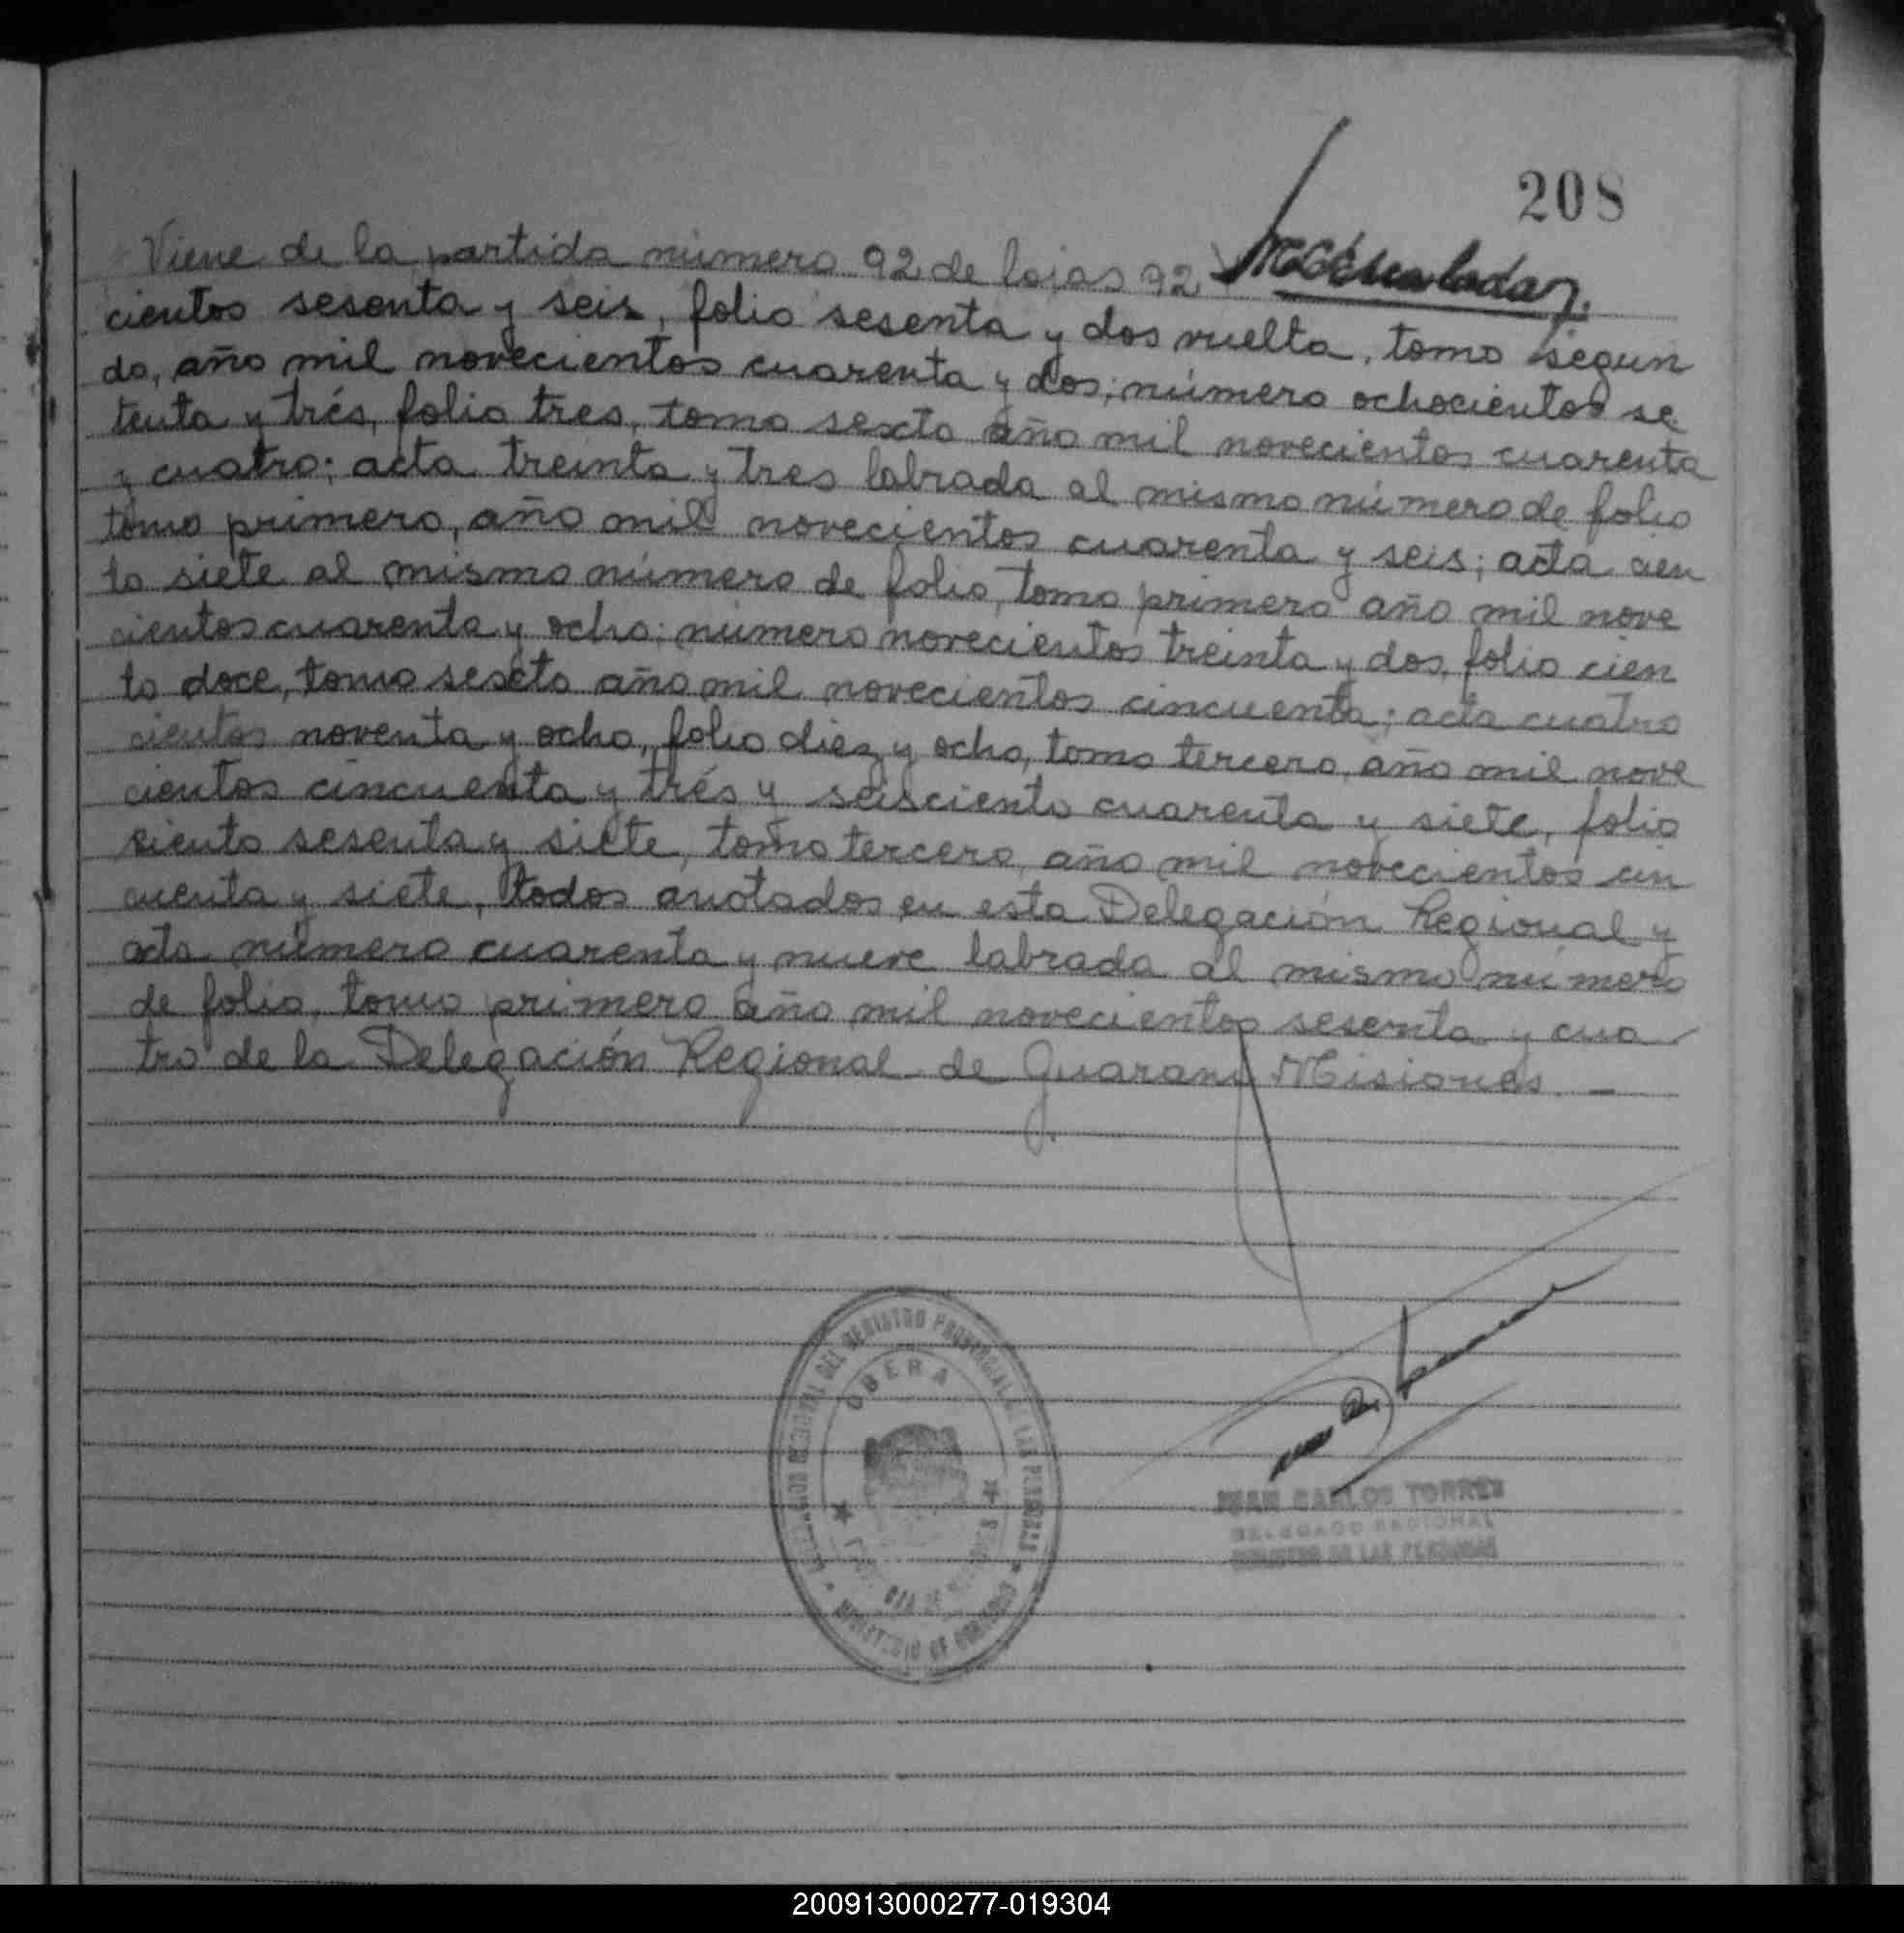 208
Viene de la partida número 92 de fojas 92
cientos sesenta y seis, folio sesenta y dos vuelta, tomo segun
do, año mil novecientos cuarenta y dos; número ochocientos se
tenta y trés, folio tres, tomo sexto año mil novecientos cuarenta
y cuatro; acta treinta y tres labrada al mismo número de folio
tomo primero, año mil novecientos cuarenta y seis; acta cien
to siete al mismo número de folio, tomo primero año mil nove
cientos cuarenta y ocho; número novecientos treinta y dos, folio cien
to doce, tomo sexto año mil novecientos cincuenta; acta cuatro
cientos noventa y ocho, folio diez y ocho, tomo tercero, año mil nove
cientos cincuenta y trés y seisciento cuarenta y siete, folio
ciento sesenta y siete, tomo tercero, año mil novecientos cin
cuenta y siete, todos anotados en esta Delegación Regional y
acta número cuarenta y nueve labrada al mismo número
de folio, tomo primero año mil novecientos sesenta y cua
tro de la Delegación Regional de Guarani Misiones. -
DELEGACION REGIONAL DEL REGISTRO PROVINCIAL DE LAS PERSONAS
OBERA
MINISTERIO DE GOBIERNO
JUAN CARLOS TORRES
DELEGADO REGIONAL
REGISTRO DE LAS PERSONAS
200913000277-019304